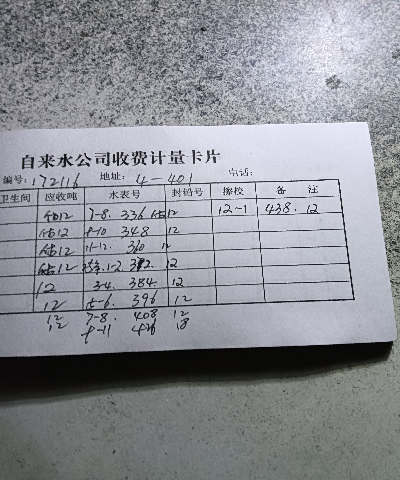 自来水公司收费计量卡片
编号: 172116 地址: 4-401 电话:
卫生间 应收吨 水表号 封铅号 擦校 备 注
估12 7-8. 336 12 12-1 438. 12
估12 9-10 348 12
估12 11-12. 360 12
估12 1-2 372 12
12 3-4. 384. 12
12 5-6. 396 12
12 7-8. 408 12
12 9-11 426 18